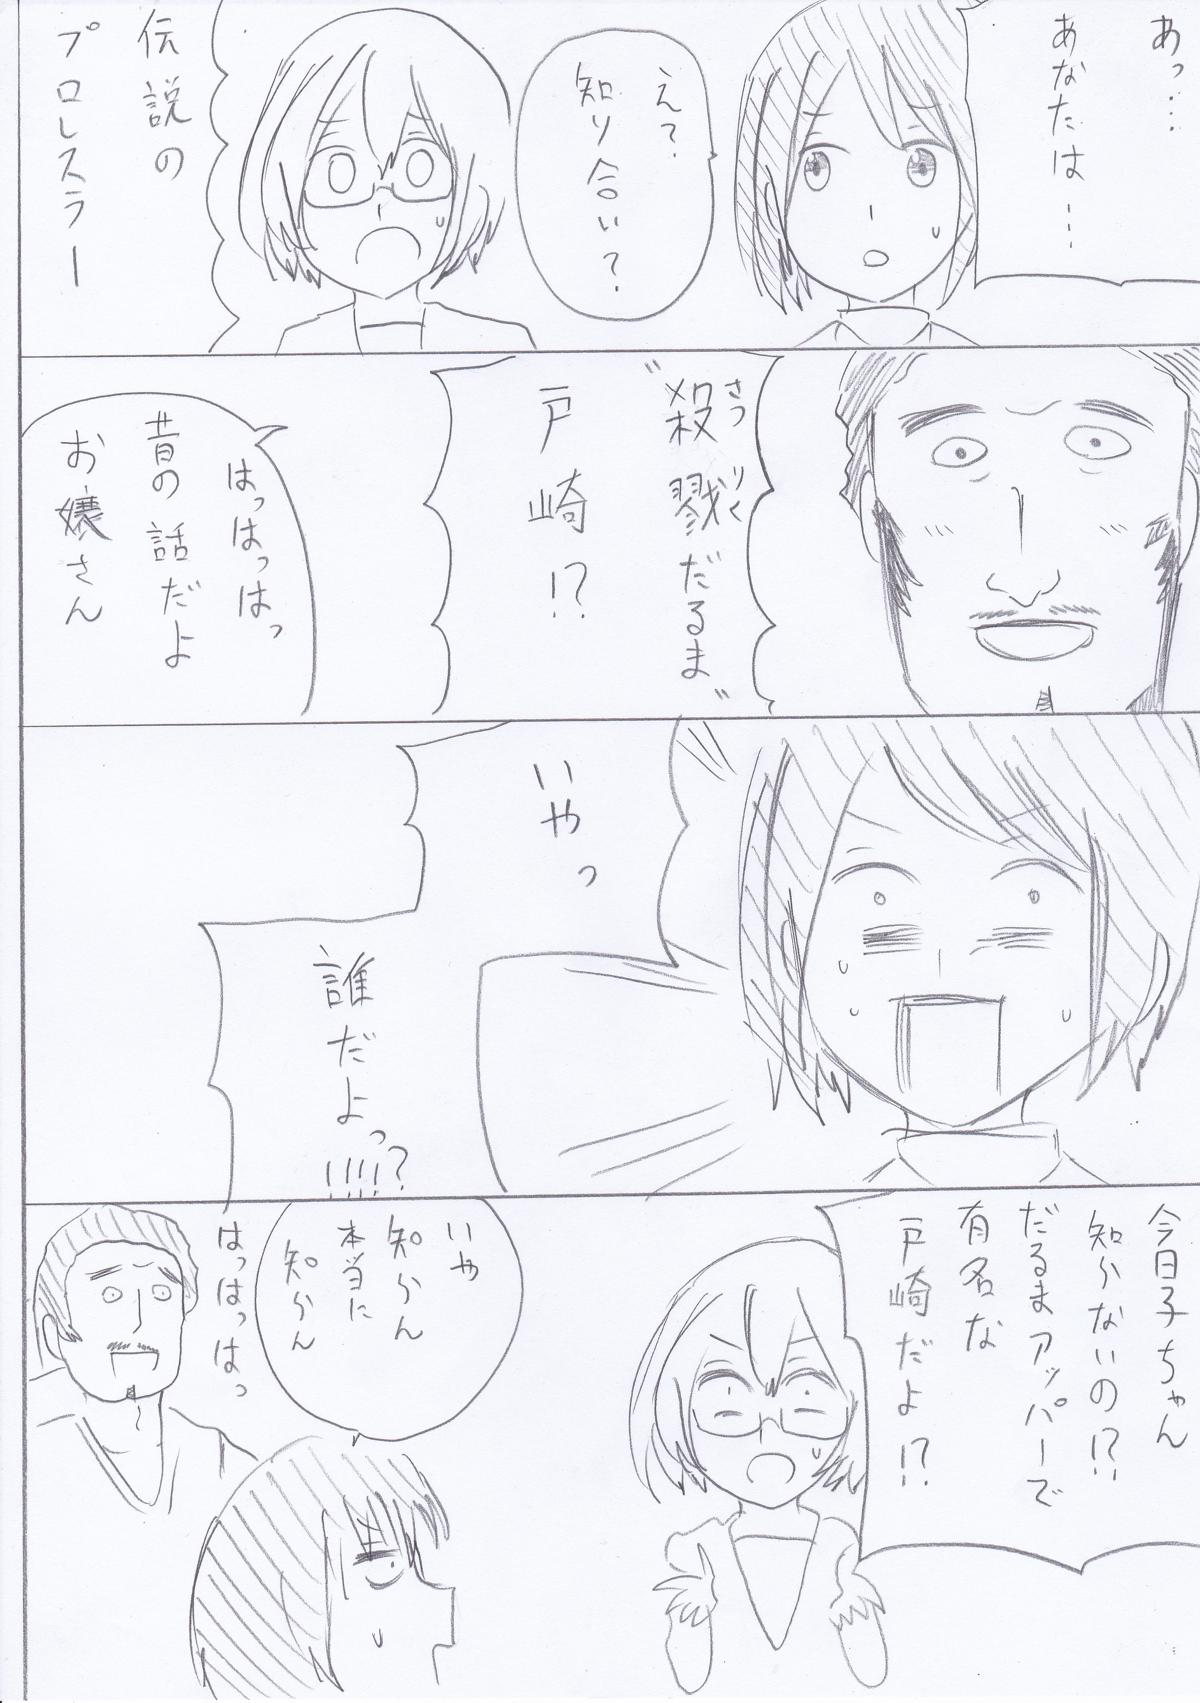 あっ…
あなたは…
え?
知り合い?
伝説の
プロレスラー
“殺戮だるま”
さつりく
戸崎!?
はっはっはっ
昔の話だよ
お嬢さん
いやっ
誰だよっ!!!!?
今日子ちゃん
知らないの!?
だるまアッパーで
有名な
戸崎だよ!?
いや
知らん
本当に
知らん
はっはっはっ